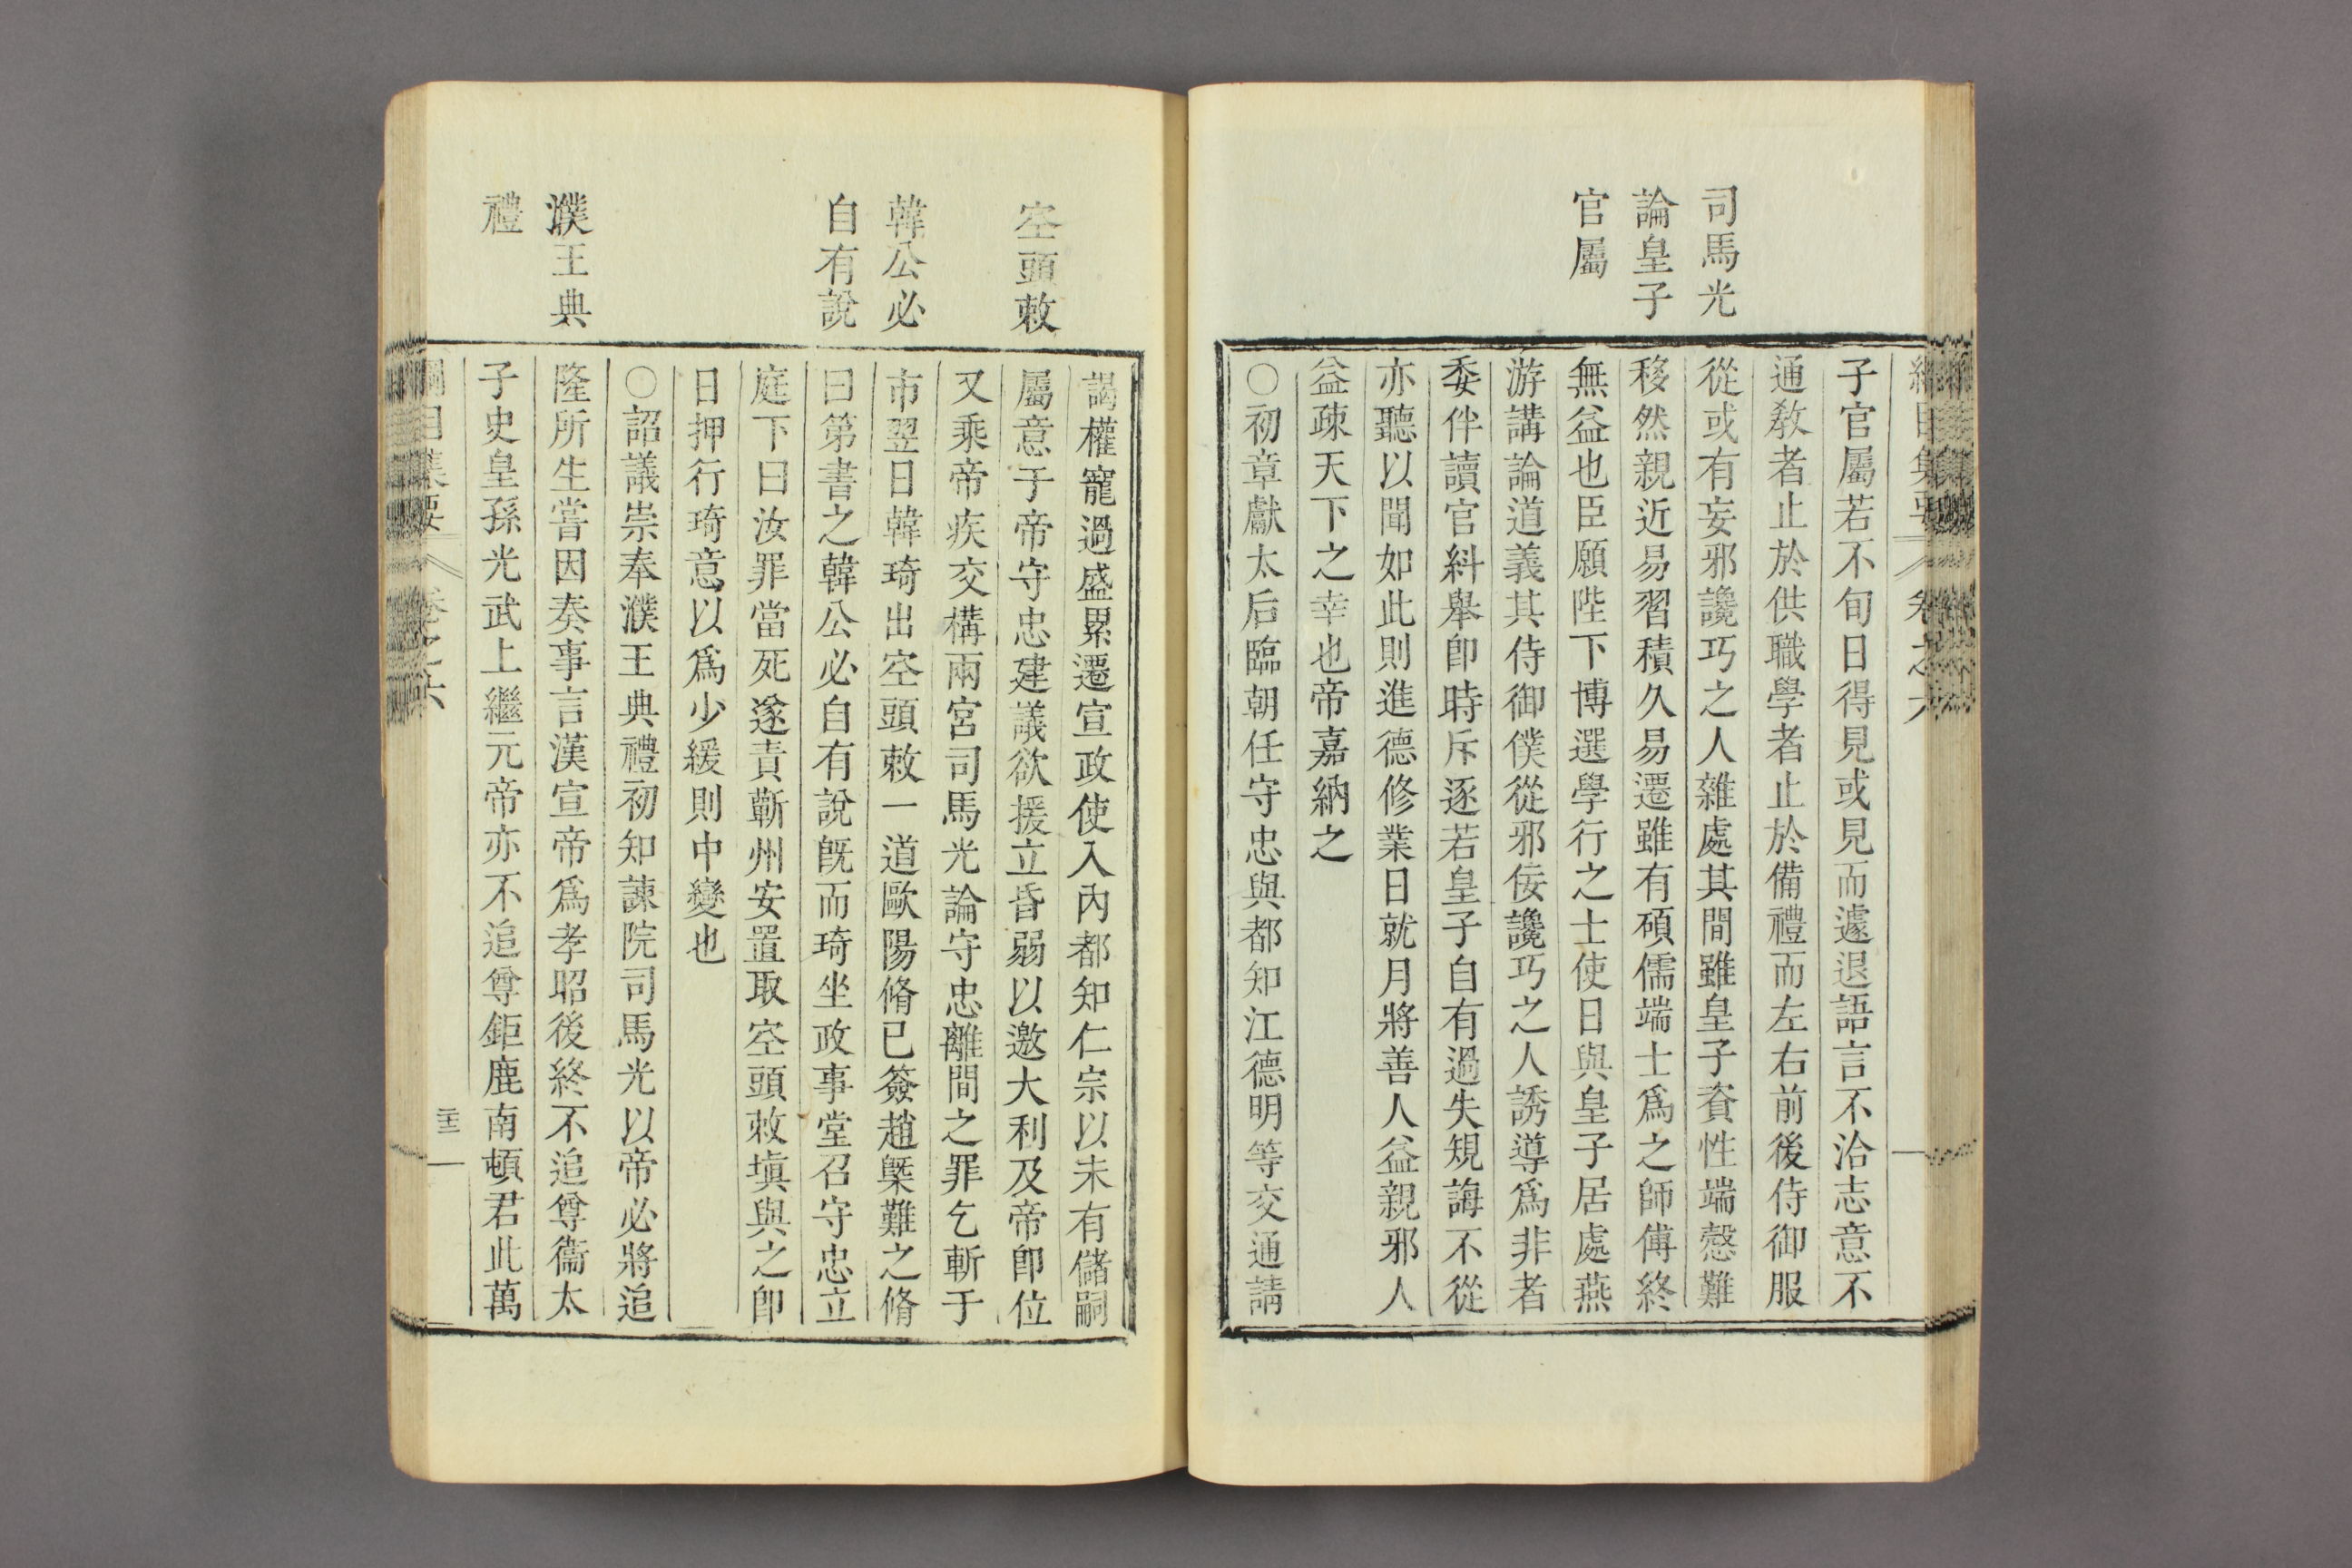 司馬光
論皇子
官屬
子官屬若不旬日得見或見而遽退語言不洽志意不
通敎者止於供職學者止於備禮而左右前後侍御服
從或有妄邪讒巧之人雜處其間雖皇子資性端慤難
移然親近易習積久易遷雖有碩儒端士爲之師傅終
無益也臣願陛下博選學行之士使日與皇子居處燕
游講論道義其侍御僕從邪佞讒巧之人誘導爲非者
委伴讀官糾舉卽時斥逐若皇子自有過失規誨不從
亦聽以聞如此則進德修業日就月將善人益親邪人
益疎天下之幸也帝嘉納之
○初章獻太后臨朝任守忠與都知江德明等交通請
空頭敕
韓公必
自有說
濮王典
禮
謁權寵過盛累遷宣政使入內都知仁宗以未有儲嗣
屬意于帝守忠建議欲援立昏弱以邀大利及帝卽位
又乘帝疾交構兩宮司馬光論守忠離間之罪乞斬于
市翌日韓琦出空頭敕一道歐陽脩已簽趙槩難之脩
曰第書之韓公必自有說旣而琦坐政事堂召守忠立
庭下曰汝罪當死遂責蘄州安置取空頭敕塡與之卽
日押行琦意以爲少緩則中變也
○詔議崇奉濮王典禮初知諫院司馬光以帝必將追
隆所生嘗因奏事言漢宣帝爲孝昭後終不追尊衞太
子史皇孫光武上繼元帝亦不追尊鉅鹿南頓君此萬
綱目集要 卷之六